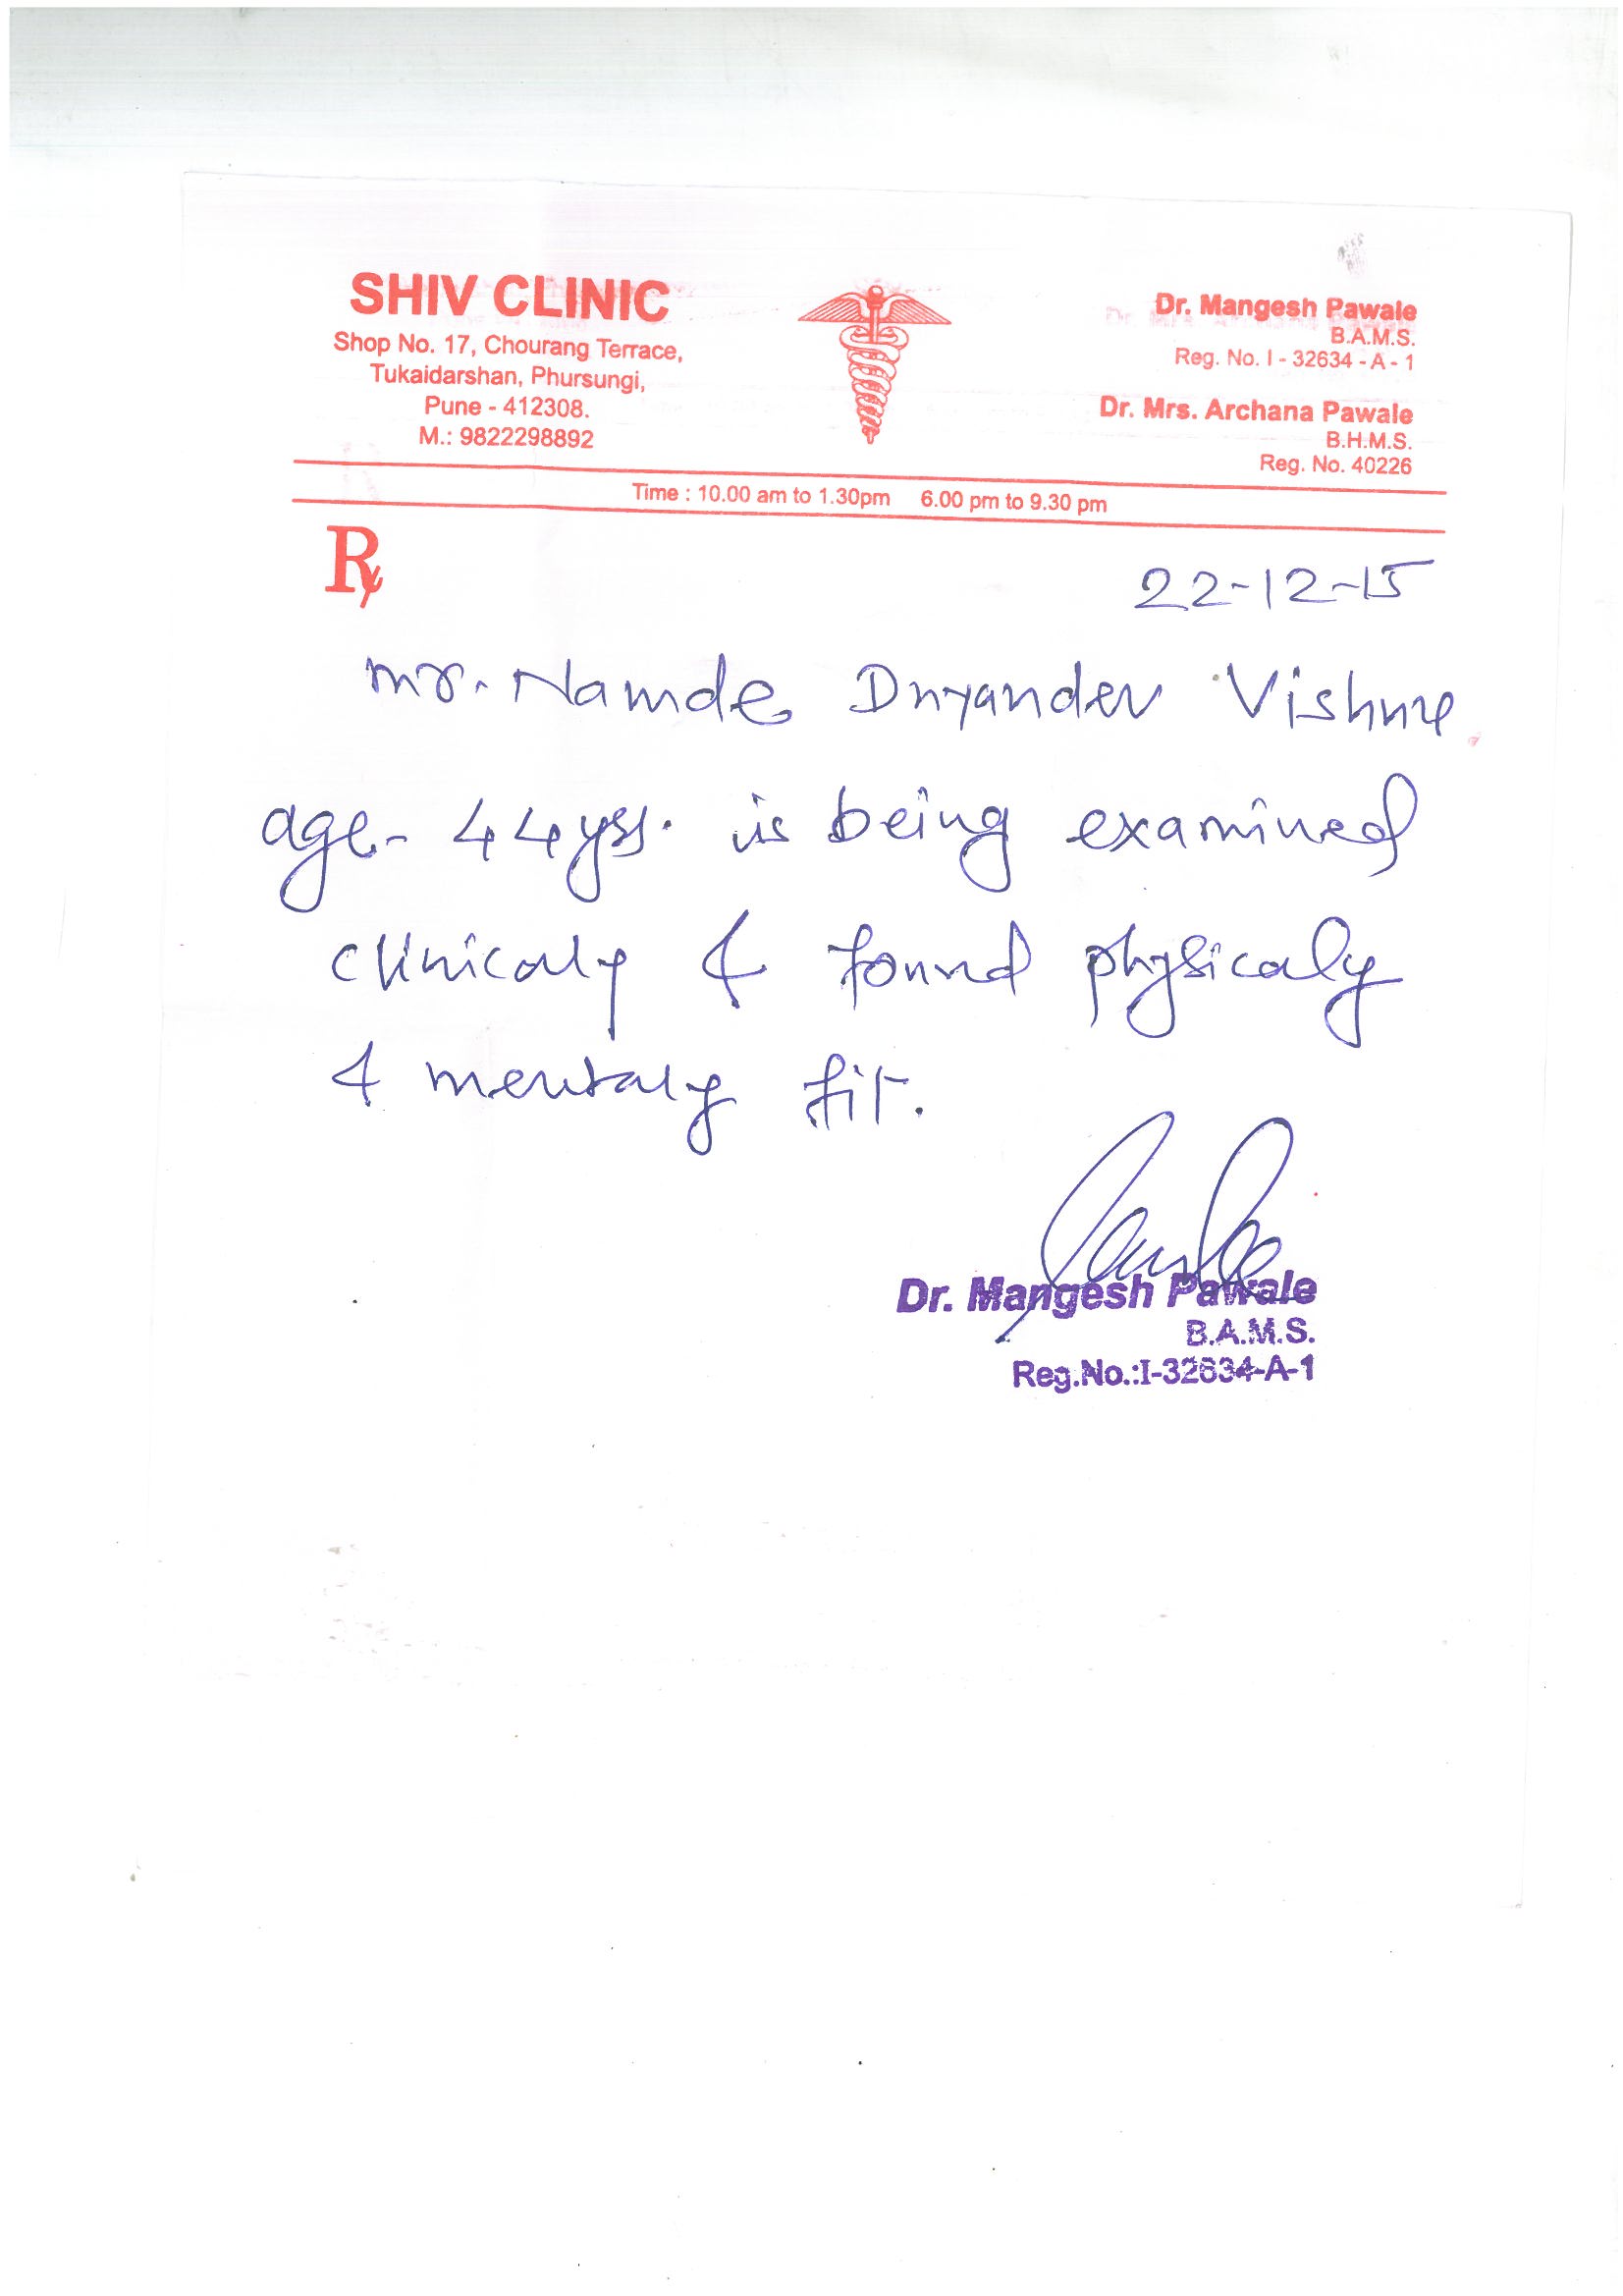 SHIV CLINIC
Shop No. 17, Chourang Terrace,
Tukaidarshan, Phursungi,
Pune - 412308.
M.: 9822298892
Dr. Mangesh Pawale
B.A.M.S.
Reg. No. I - 32634 - A - 1
Dr. Mrs. Archana Pawale
B.H.M.S.
Reg. No. 40226
Time : 10.00 am to 1.30pm 6.00 pm to 9.30 pm
Rx
22-12-15
Mr. Namde Dnyandev Vishnu
age- 44yrs. is being examined
clinicaly & found physicaly
& mentaly fit.
Dr. Mangesh Pawale
B.A.M.S.
Reg.No.:I-32634-A-1